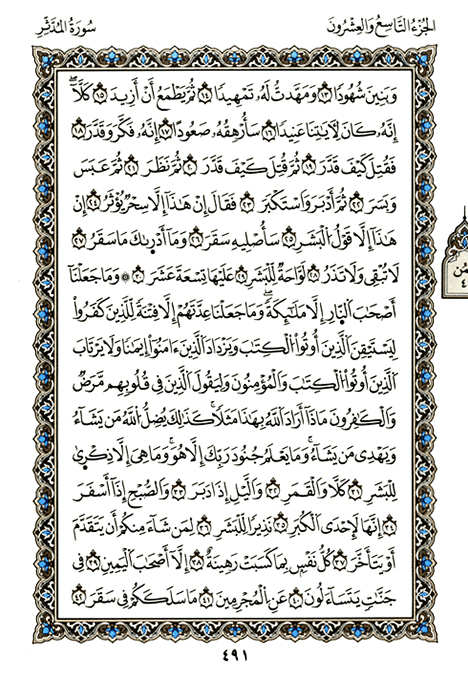 الجزء التاسع والعشرون
سورة المدثر
وَبَنِينَ شُهُودًا ١٣ وَمَهَّدتُّ لَهُۥ تَمْهِيدًا ١٤ ثُمَّ يَطْمَعُ أَنْ أَزِيدَ ١٥ كَلَّآۖ
إِنَّهُۥ كَانَ لِأٓيَٰتِنَا عَنِيدًا ١٦ سَأُرْهِقُهُۥ صَعُودًا ١٧ إِنَّهُۥ فَكَّرَ وَقَدَّرَ ١٨
فَقُتِلَ كَيْفَ قَدَّرَ ١٩ ثُمَّ قُتِلَ كَيْفَ قَدَّرَ ٢٠ ثُمَّ نَظَرَ ٢١ ثُمَّ عَبَسَ
وَبَسَرَ ٢٢ ثُمَّ أَدْبَرَ وَٱسْتَكْبَرَ ٢٣ فَقَالَ إِنْ هَٰذَآ إِلَّا سِحْرٌ يُؤْثَرُ ٢٤ إِنْ
هَٰذَآ إِلَّا قَوْلُ ٱلْبَشَرِ ٢٥ سَأُصْلِيهِ سَقَرَ ٢٦ وَمَآ أَدْرَىٰكَ مَا سَقَرُ ٢٧
لَا تُبْقِى وَلَا تَذَرُ ٢٨ لَوَّاحَةٌ لِّلْبَشَرِ ٢٩ عَلَيْهَا تِسْعَةَ عَشَرَ ٣٠ ۞ وَمَا جَعَلْنَآ
أَصْحَٰبَ ٱلنَّارِ إِلَّا مَلَٰٓئِكَةًۖ وَمَا جَعَلْنَا عِدَّتَهُمْ إِلَّا فِتْنَةً لِّلَّذِينَ كَفَرُوا۟
لِيَسْتَيْقِنَ ٱلَّذِينَ أُوتُوا۟ ٱلْكِتَٰبَ وَيَزْدَادَ ٱلَّذِينَ ءَامَنُوٓا۟ إِيمَٰنًا وَلَا يَرْتَابَ
ٱلَّذِينَ أُوتُوا۟ ٱلْكِتَٰبَ وَٱلْمُؤْمِنُونَ وَلِيَقُولَ ٱلَّذِينَ فِى قُلُوبِهِم مَّرَضٌ
وَٱلْكَٰفِرُونَ مَاذَآ أَرَادَ ٱللَّهُ بِهَٰذَا مَثَلًا كَذَٰلِكَ يُضِلُّ ٱللَّهُ مَن يَشَآءُ
وَيَهْدِى مَن يَشَآءُ وَمَا يَعْلَمُ جُنُودَ رَبِّكَ إِلَّا هُوَ وَمَا هِىَ إِلَّا ذِكْرَىٰ
لِلْبَشَرِ ٣١ كَلَّا وَٱلْقَمَرِ ٣٢ وَٱلَّيْلِ إِذْ أَدْبَرَ ٣٣ وَٱلصُّبْحِ إِذَآ أَسْفَرَ
٣٤ إِنَّهَا لَإِحْدَى ٱلْكُبَرِ ٣٥ نَذِيرًا لِّلْبَشَرِ ٣٦ لِمَن شَآءَ مِنكُمْ أَن يَتَقَدَّمَ
أَوْ يَتَأَخَّرَ ٣٧ كُلُّ نَفْسٍۭ بِمَا كَسَبَتْ رَهِينَةٌ ٣٨ إِلَّآ أَصْحَٰبَ ٱلْيَمِينِ ٣٩ فِى
جَنَّٰتٍ يَتَسَآءَلُونَ ٤٠ عَنِ ٱلْمُجْرِمِينَ ٤١ مَا سَلَكَكُمْ فِى سَقَرَ ٤٢
٤٩١